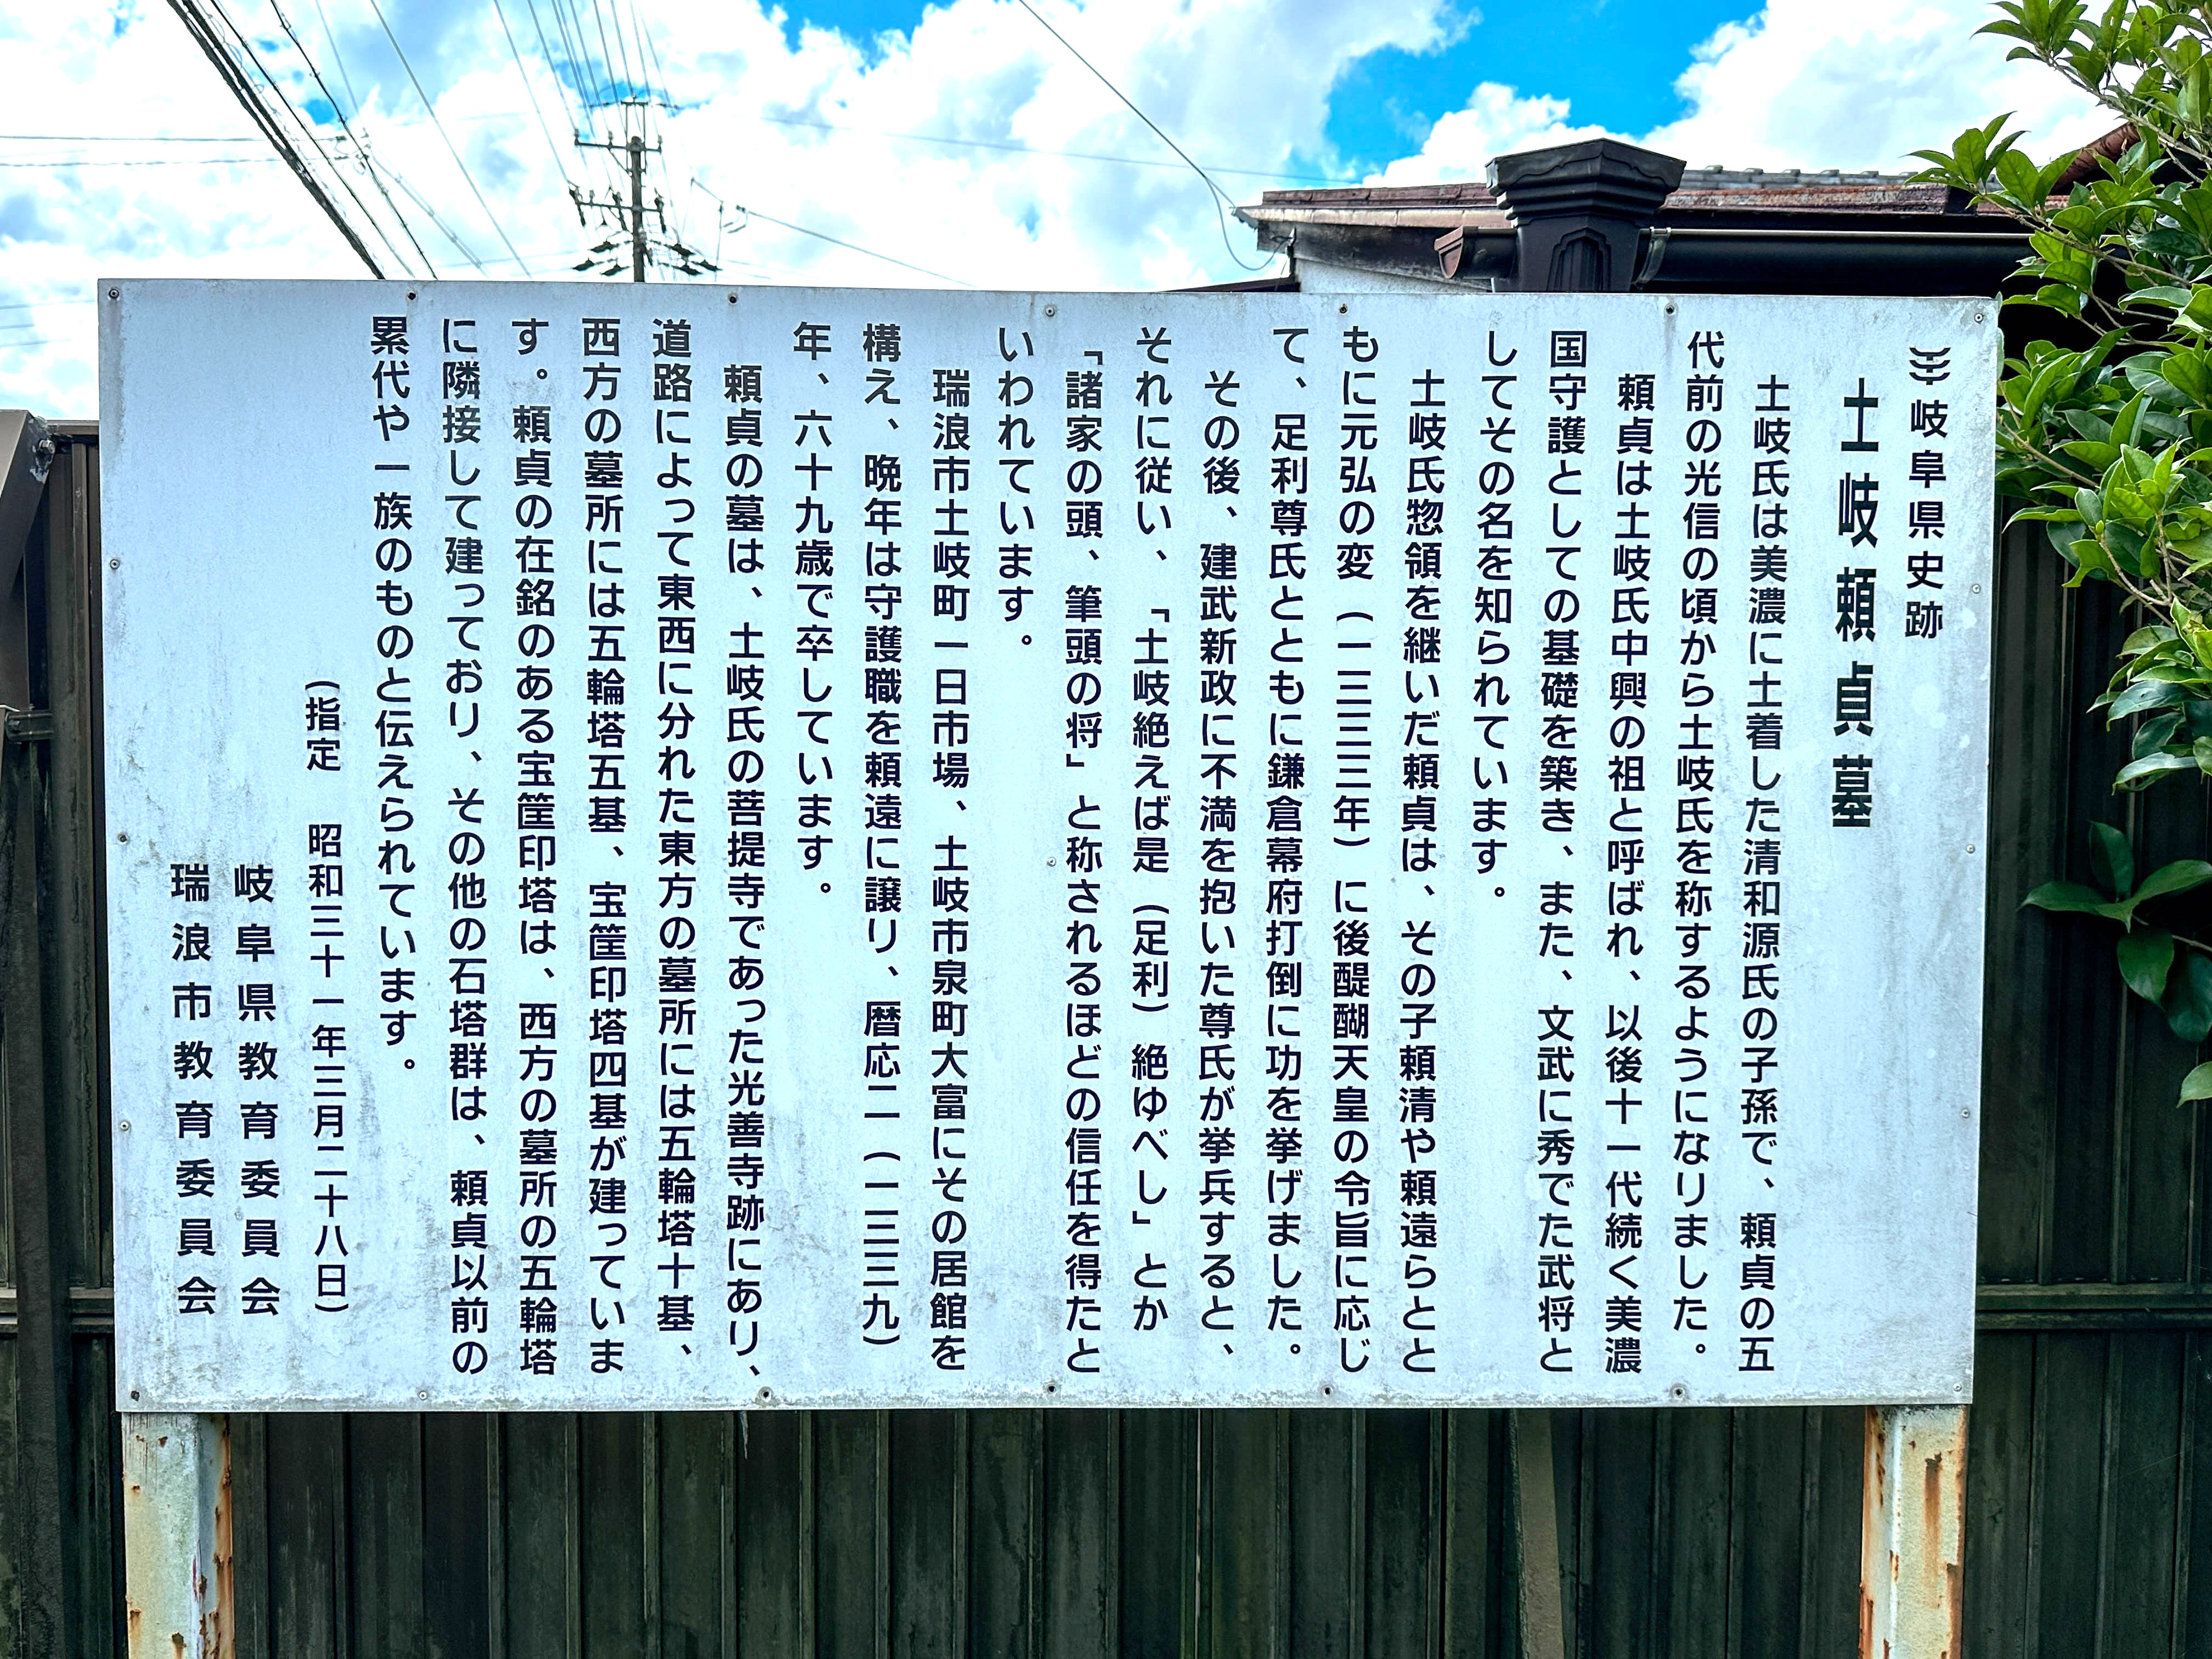 岐阜県史跡
土岐頼貞墓
土岐氏は美濃に土着した清和源氏の子孫で、頼貞の五
代前の光信の頃から土岐氏を称するようになりました。
頼貞は土岐氏中興の祖と呼ばれ、以後十一代続く美濃
国守護としての基礎を築き、また、文武に秀でた武将と
してその名を知られています。
土岐氏惣領を継いだ頼貞は、その子頼清や頼遠らとと
もに元弘の変（一三三三年）に後醍醐天皇の令旨に応じ
て、足利尊氏とともに鎌倉幕府打倒に功を挙げました。
その後、建武新政に不満を抱いた尊氏が挙兵すると、
それに従い、「土岐絶えば是（足利）絶ゆべし」とか
「諸家の頭、筆頭の将」と称されるほどの信任を得たと
いわれています。
瑞浪市土岐町一日市場、土岐市泉町大富にその居館を
構え、晩年は守護職を頼遠に譲り、暦応二（一三三九）
年、六十九歳で卒しています。
頼貞の墓は、土岐氏の菩提寺であった光善寺跡にあり、
道路によって東西に分れた東方の墓所には五輪塔十基、
西方の墓所には五輪塔五基、宝筐印塔四基が建っていま
す。頼貞の在銘のある宝筐印塔は、西方の墓所の五輪塔
に隣接して建っており、その他の石塔群は、頼貞以前の
累代や一族のものと伝えられています。
（指定　昭和三十一年三月二十八日）
岐阜県教育委員会
瑞浪市教育委員会